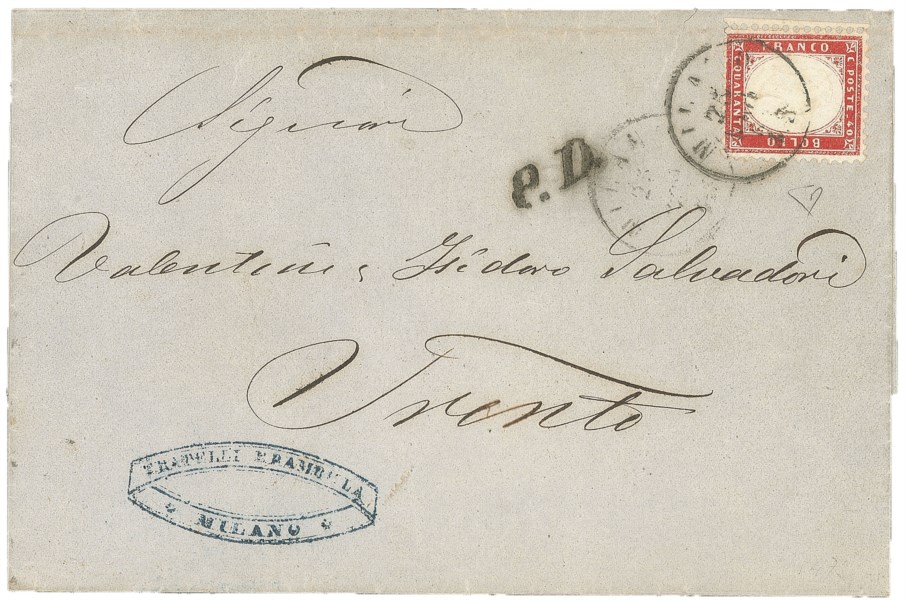 FRANCO
C. POSTE. 40
BOLLO
C. QUARANTA
MILANO
23
MILAN
23
P.D.
Signori
Valentini e Isidoro Salvadori
Trento
FRATELLI BRAMBILLA
MILANO